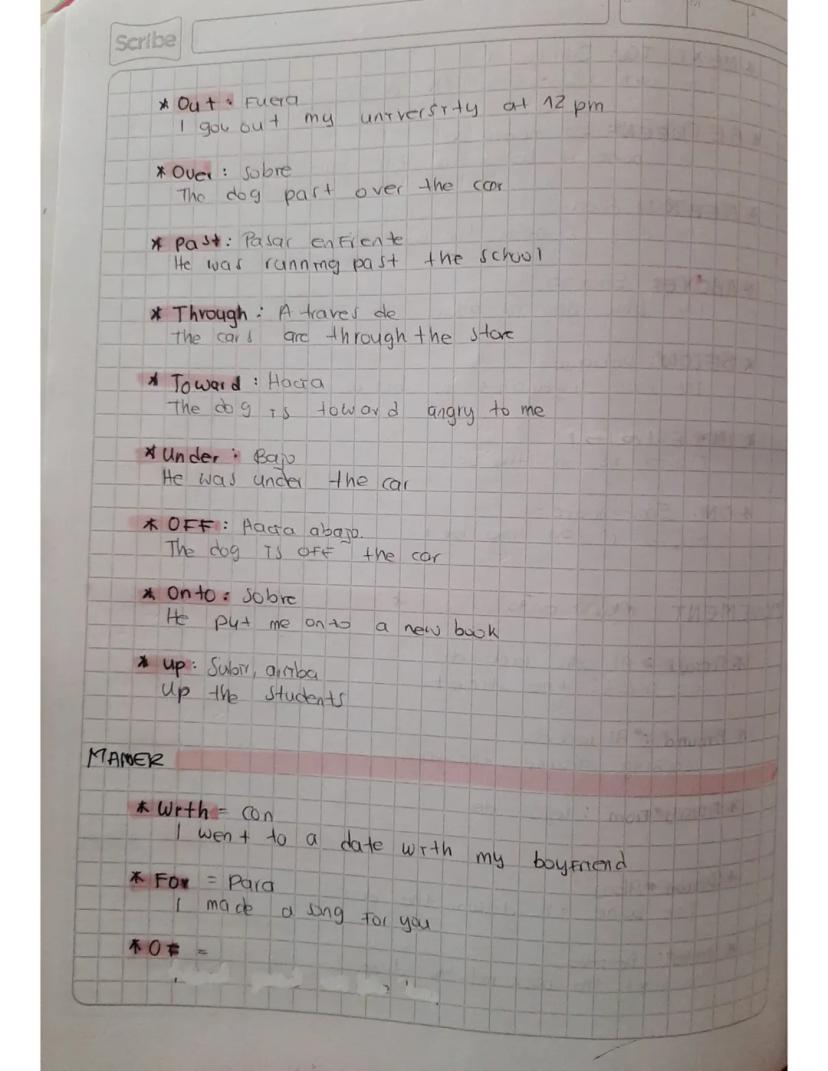 Scribe
* Out : Fuera
I gou out my university at 12 pm
* Over : Sobre
The dog past over the car
* Past : Pasar enfrente
He was running past the school
* Through : A traves de
The cars are through the store
* Toward : Hacia
The dog is toward angry to me
* Under : Bajo
He was under the car
* OFF : Hacia abajo.
The dog is off the car
* Onto : Sobre
He put me onto a new book
* Up : Subir, arriba
Up the students
MANER
* With = con
I went to a date with my boyfriend
* For = Para
I made a song for you
* OF =